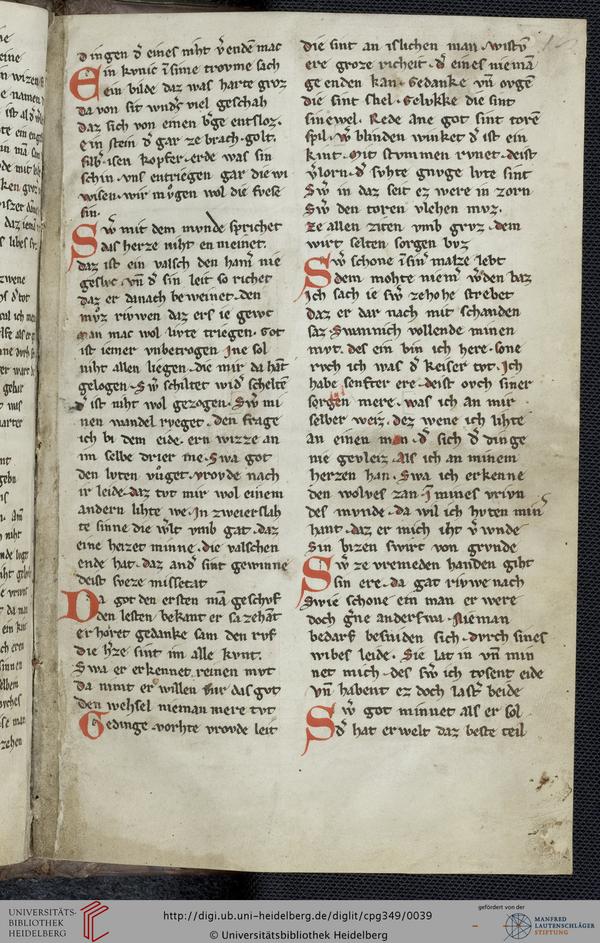 dingen d' eines niht v'ende mac
Ein kvnic ī sime trovme sach
ein bilde daz was harte groz
da von sit wnd's viel geschah
daz sich von einen b'ge entsloz.
ein stein d' gar ze brach. golt.
silb'. isen kopfer. erde was sin
schin. vns entriegen gar die wi
wisen. wir mvgen wol die fvese
sin.
Sw' mit dem mvnde sprichet
das herze niht en meinet.
daz ist ein valsch den hant nie
geslvc. vn̄ d' sin leit so richet
daz er danach beweinet. den
mvz rivwen daz ers ie gewc
man mac wol livte triegen. Got
ist iemer vnbetrogen Jne sol
niht allen liegen. die mir da hāt
gelogen. Sw' schiltet wid' scheltē
d' ist niht wol gezogen. Sw' mi
nen wandel rveget. den frage
ich bi dem eide. ern wizze an
im selbe drier me. Swa got
den lvten vu'get. vrovde nach
ir leide. daz tvt mir wol einem
andern lihte we. Jn zweier slah
te sinne die w'lt vmb gat. daz
eine heizet minne. die valschen
ende hat. daz and' sint gewinne
deist sveze missetat
Da got den ersten mā geschvf
den lesten bekant er sa zehāt
er horet gedanke sam den rvf
die h'ze sint im alle kvnt.
Swa er erkennet reinen mvt
da nimt er willen fur das gvt
den wehsel nieman mere tvt
Gedinge vorhte vrovde leit
die sint an islichen man. wistv̄
ere groze richeit. d' eines niemā
ge enden kan. Gedanke vn̄ ovgē
die sint snel. Gelvkke die sint
sinewel. Rede ane got sint torē
spil. w' blinden winket d' ist ein
kint. Mit stvmmen rvnet. deist
v'lorn. d' svht gnvge lvte sint
Sw' in daz seit ez were in zorn
Sw' den toren vlehen mvz.
ze allen ziten vmb grvz. dem
wirt selten sorgen bvz
Sw' schone ī sin' malze lebt
dem mohte niem' w'den baz
Jch sach ie sw' zehohe strebet
daz er dar nach mit schanden
saz. Swannich vollende minen
mvt. des ein bin ich here. sone
rvch ich was d' keiser tvt. Jch
habe senfter ere. deist ovch siner
sorgen mere. was ich an mir
selber weiz. dez wene ich lihte
an einen man. d' sich d' dinge
nie gevleiz. Als ich an minem
herzen han. Swa ich erkenne
den wolves zan. ī mines vrivn
des mvnde. da wil ich hvten min
hant. daz er mich iht v'wnde
Sin bizen swirt von grvnde
Sw' ze vremeden handen giht
sin ere. da gat rivwe nach
Swie schone ein man er were
doch g'ne anderswa. Nieman
bedarf besniden sich. dvrch sines
wibes leide. Sie lat in vn̄ min
net mich. des sw' ich tvsent eide
vn̄ habent ez doch last' beide
Sw' got minnet als er sol
d' hat erwelt daz beste teil
UNIVERSITÄTS-
BIBLIOTHEK
HEIDELBERG
http://digi.ub.uni-heidelberg.de/diglit/cpg349/0039
© Universitätsbibliothek Heidelberg
gefördert von der
MANFRED
LAUTENSCHLÄGER
STIFTUNG